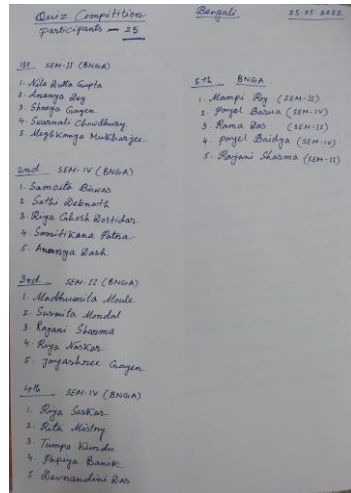 Quiz Competition
Participants — 25
Bengali
25.05.2022
1st SEM-II (BNGA)
1. Nila Dutta Gupta
2. Ananya Dey
3. Shreya Gayen
4. Swarnali Chowdhury
5. Meghkanya Mukharjee
2nd SEM-IV (BNGA)
1. Samcita Biswas
2. Sathi Debnath
3. Riya Ghosh Dostidar
4. Smritikana Patra
5. Ananya Dash
3rd SEM-II (BNGA)
1. Madhumita Moule
2. Susmita Mondal
3. Rajani Sharma
4. Riya Naskar
5. Jayashree Gayen
4th SEM-IV (BNGA)
1. Riya Sarkar
2. Rita Mistry
3. Tumpa Kundu
4. Papiya Banik
5. Dewnandini Das
5th BNGA
1. Mampi Roy (SEM-II)
2. Payel Barua (SEM-IV)
3. Rama Das (SEM-II)
4. Payel Baidya (SEM-IV)
5. Rajani Sharma (SEM-II)